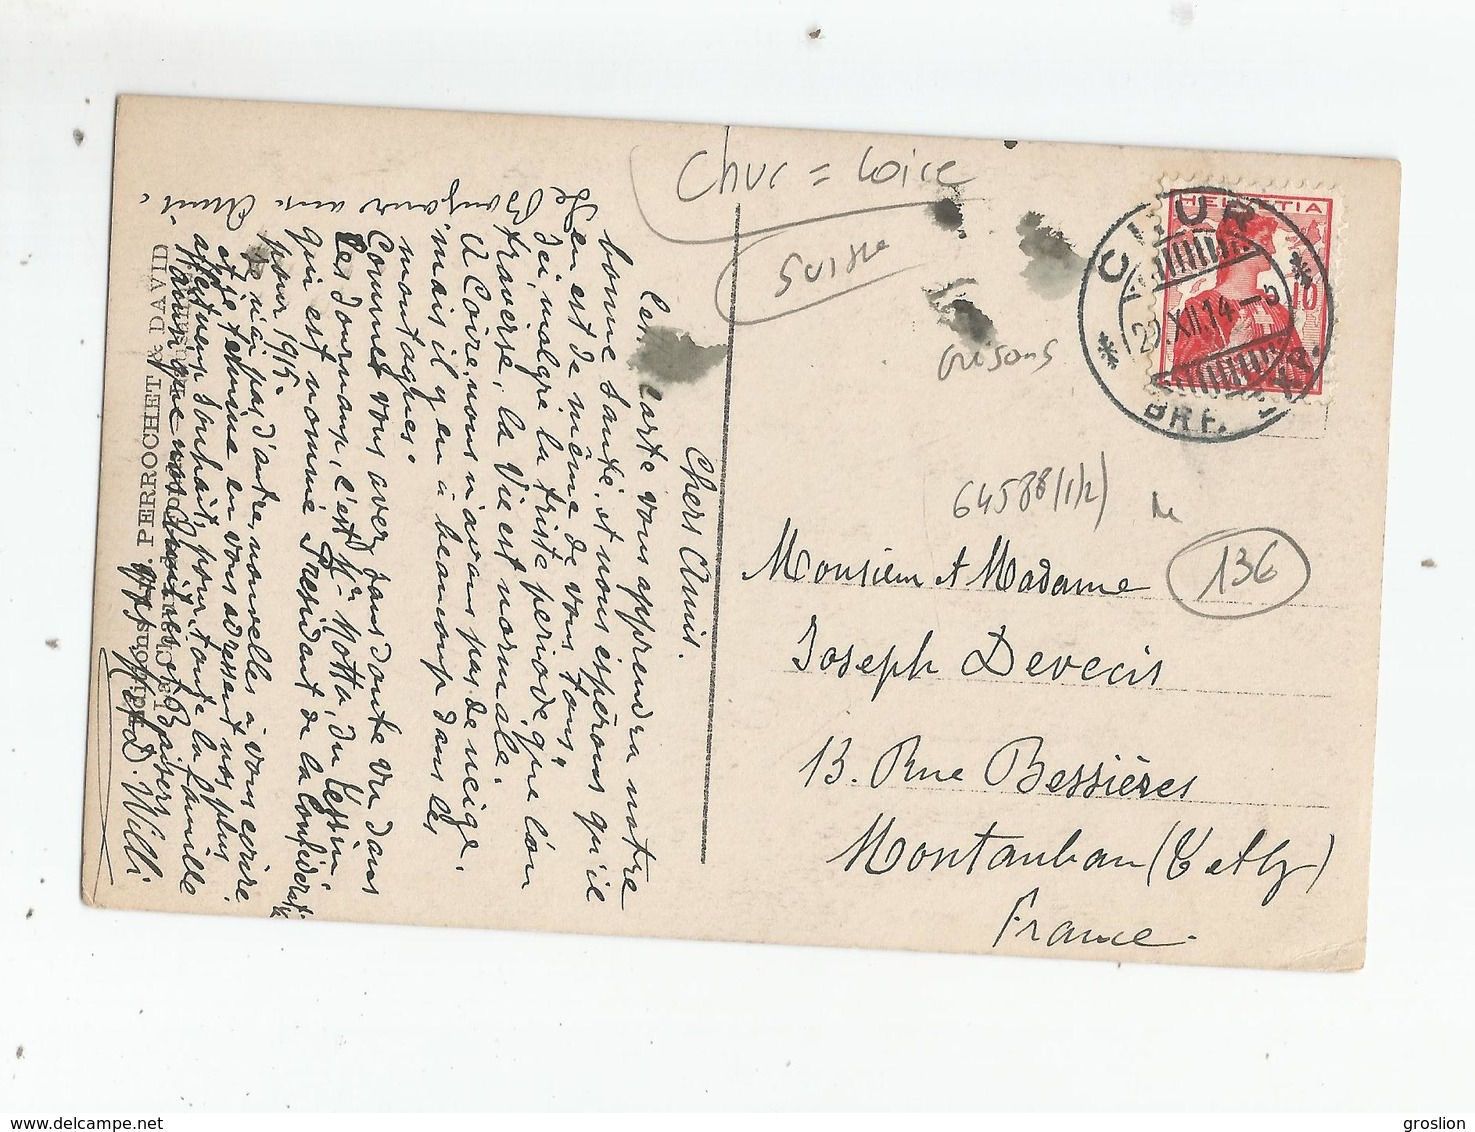 Chur = Coire
Suisse
Grisons
HELVETIA
10
CHUR
22.XII.14-5
BRF.
64588(1/2)
136
Monsieur et Madame
Joseph Devecis
13. Rue Bessières
Montauban (T et G)
France.
Chers Amis.
Cette carte vous apprendra notre
bonne santé, et nous espérons qu'il
en est de même de vous tous,
Ici, malgré la triste periode que l'on
traverse, la Vie est normale.
A Coire, nous n'avons pas de neige,
mais il y en a beaucoup dans les
montagnes.
Comme vous avez sans doute vu dans
les journaux, c'est Mr Motta, du Tessin,
qui est nommé President de la Confédération
pour 1915.
Je n'ai pas d'autre nouvelles à vous écrire
et je termine en vous adressant nos plus
affectueux souhaits, pour toute la famille
ainsi que nos Amitiés et Baisers
D. Willi.
Le Bonjour aux Amis.
Editions PERROCHET & DAVID
La Chaux-de-Fonds
groslion
delcampe.net